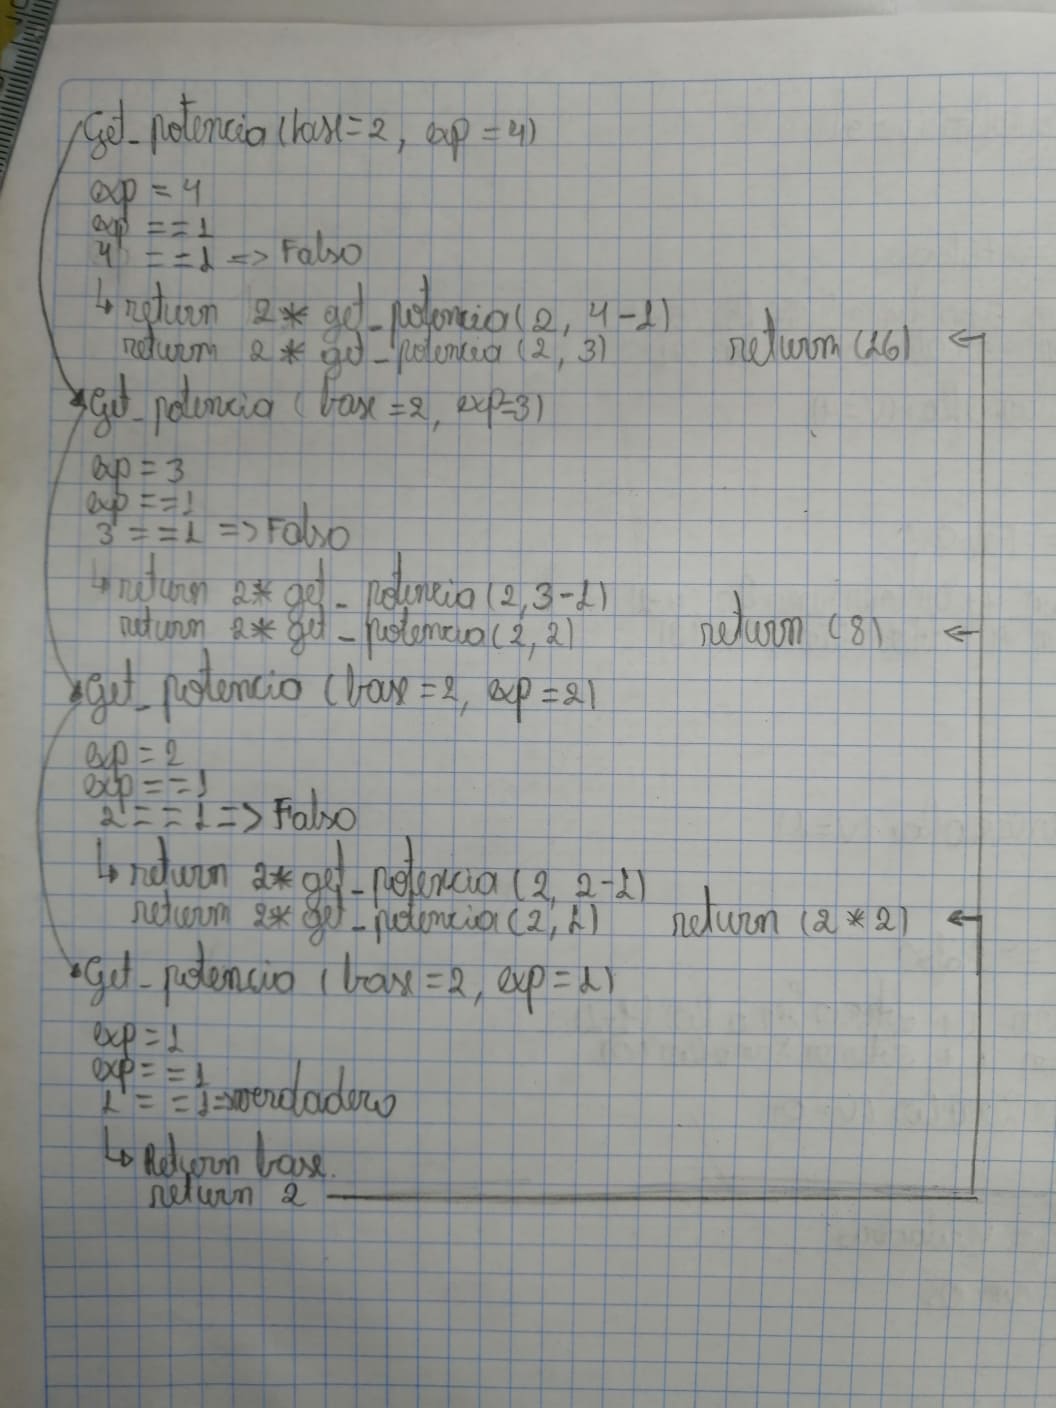 Get_potencia (base=2, exp=4)
exp = 4
exp ==1
4 ==1 => Falso
↳ return 2* get_potencia(2, 4-1)
return 2* get_potencia (2, 3) return (16) ←
Get_potencia (base=2, exp=3)
exp = 3
exp ==1
3 ==1 => Falso
↳ return 2* get_potencia(2,3-1)
return 2* get_potencia(2,2) return (8) ←
Get_potencia (base=2, exp=2)
exp = 2
exp ==1
2 ==1 => Falso
↳ return 2* get_potencia (2, 2-1)
return 2* get_potencia(2,1) return (2*2) ←
Get_potencia (base=2, exp=1)
exp = 1
exp ==1
1 ==1 => verdadero
↳ Return base.
return 2